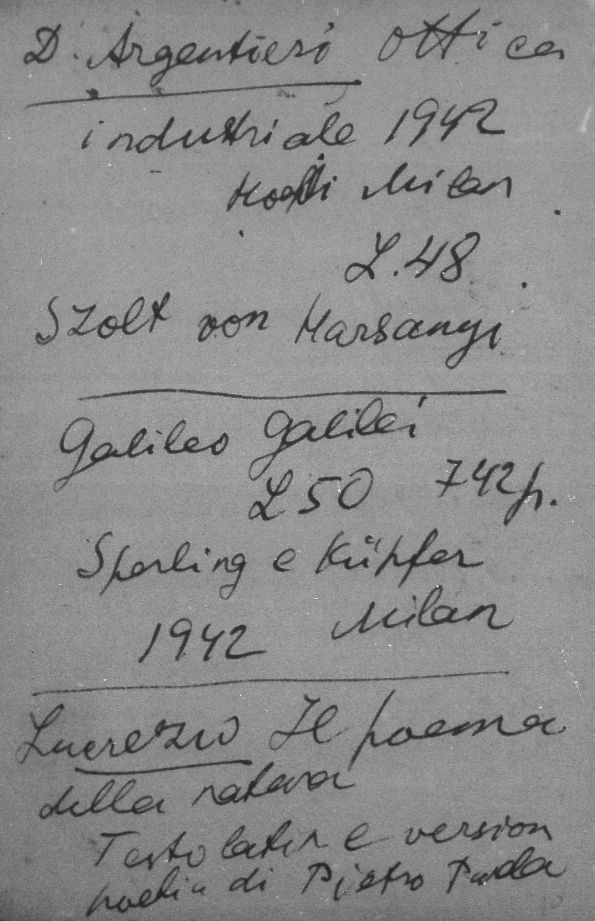 D. Argentieri Ottica
industriale 1942
Milan
L. 48
Szolt von Harsanyi
Galileo Galilei
L 50 742 p.
Sperling e Küpfer
1942 Milan
Lucrezio Il poema
della natura
Testo latin e version
di Pietro